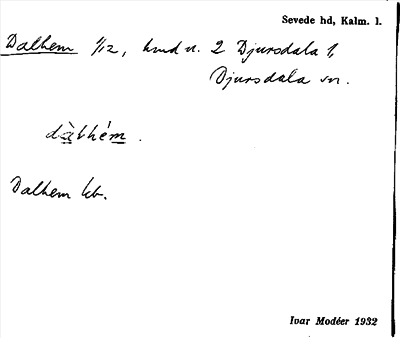 Sevede hd, Kalm. l.
Dalhem 1/12, hmd u. 2 Djursdala 1,
Djursdala sn.
dàlhém.
Dalhem kb.
Ivar Modéer 1932